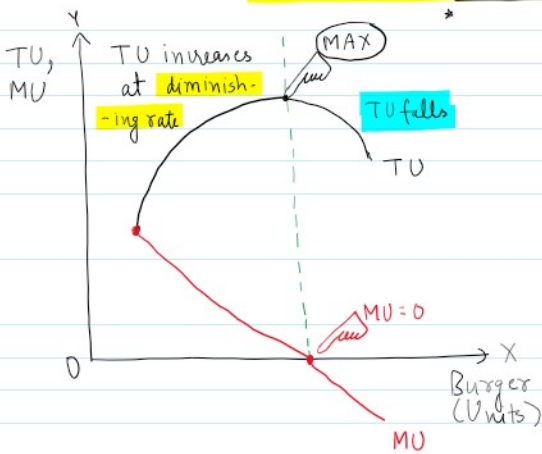 Y
TU,
MU
TU increases
at diminish-
-ing rate
MAX
TU falls
TU
MU = 0
O
X
Burger
(Units)
MU